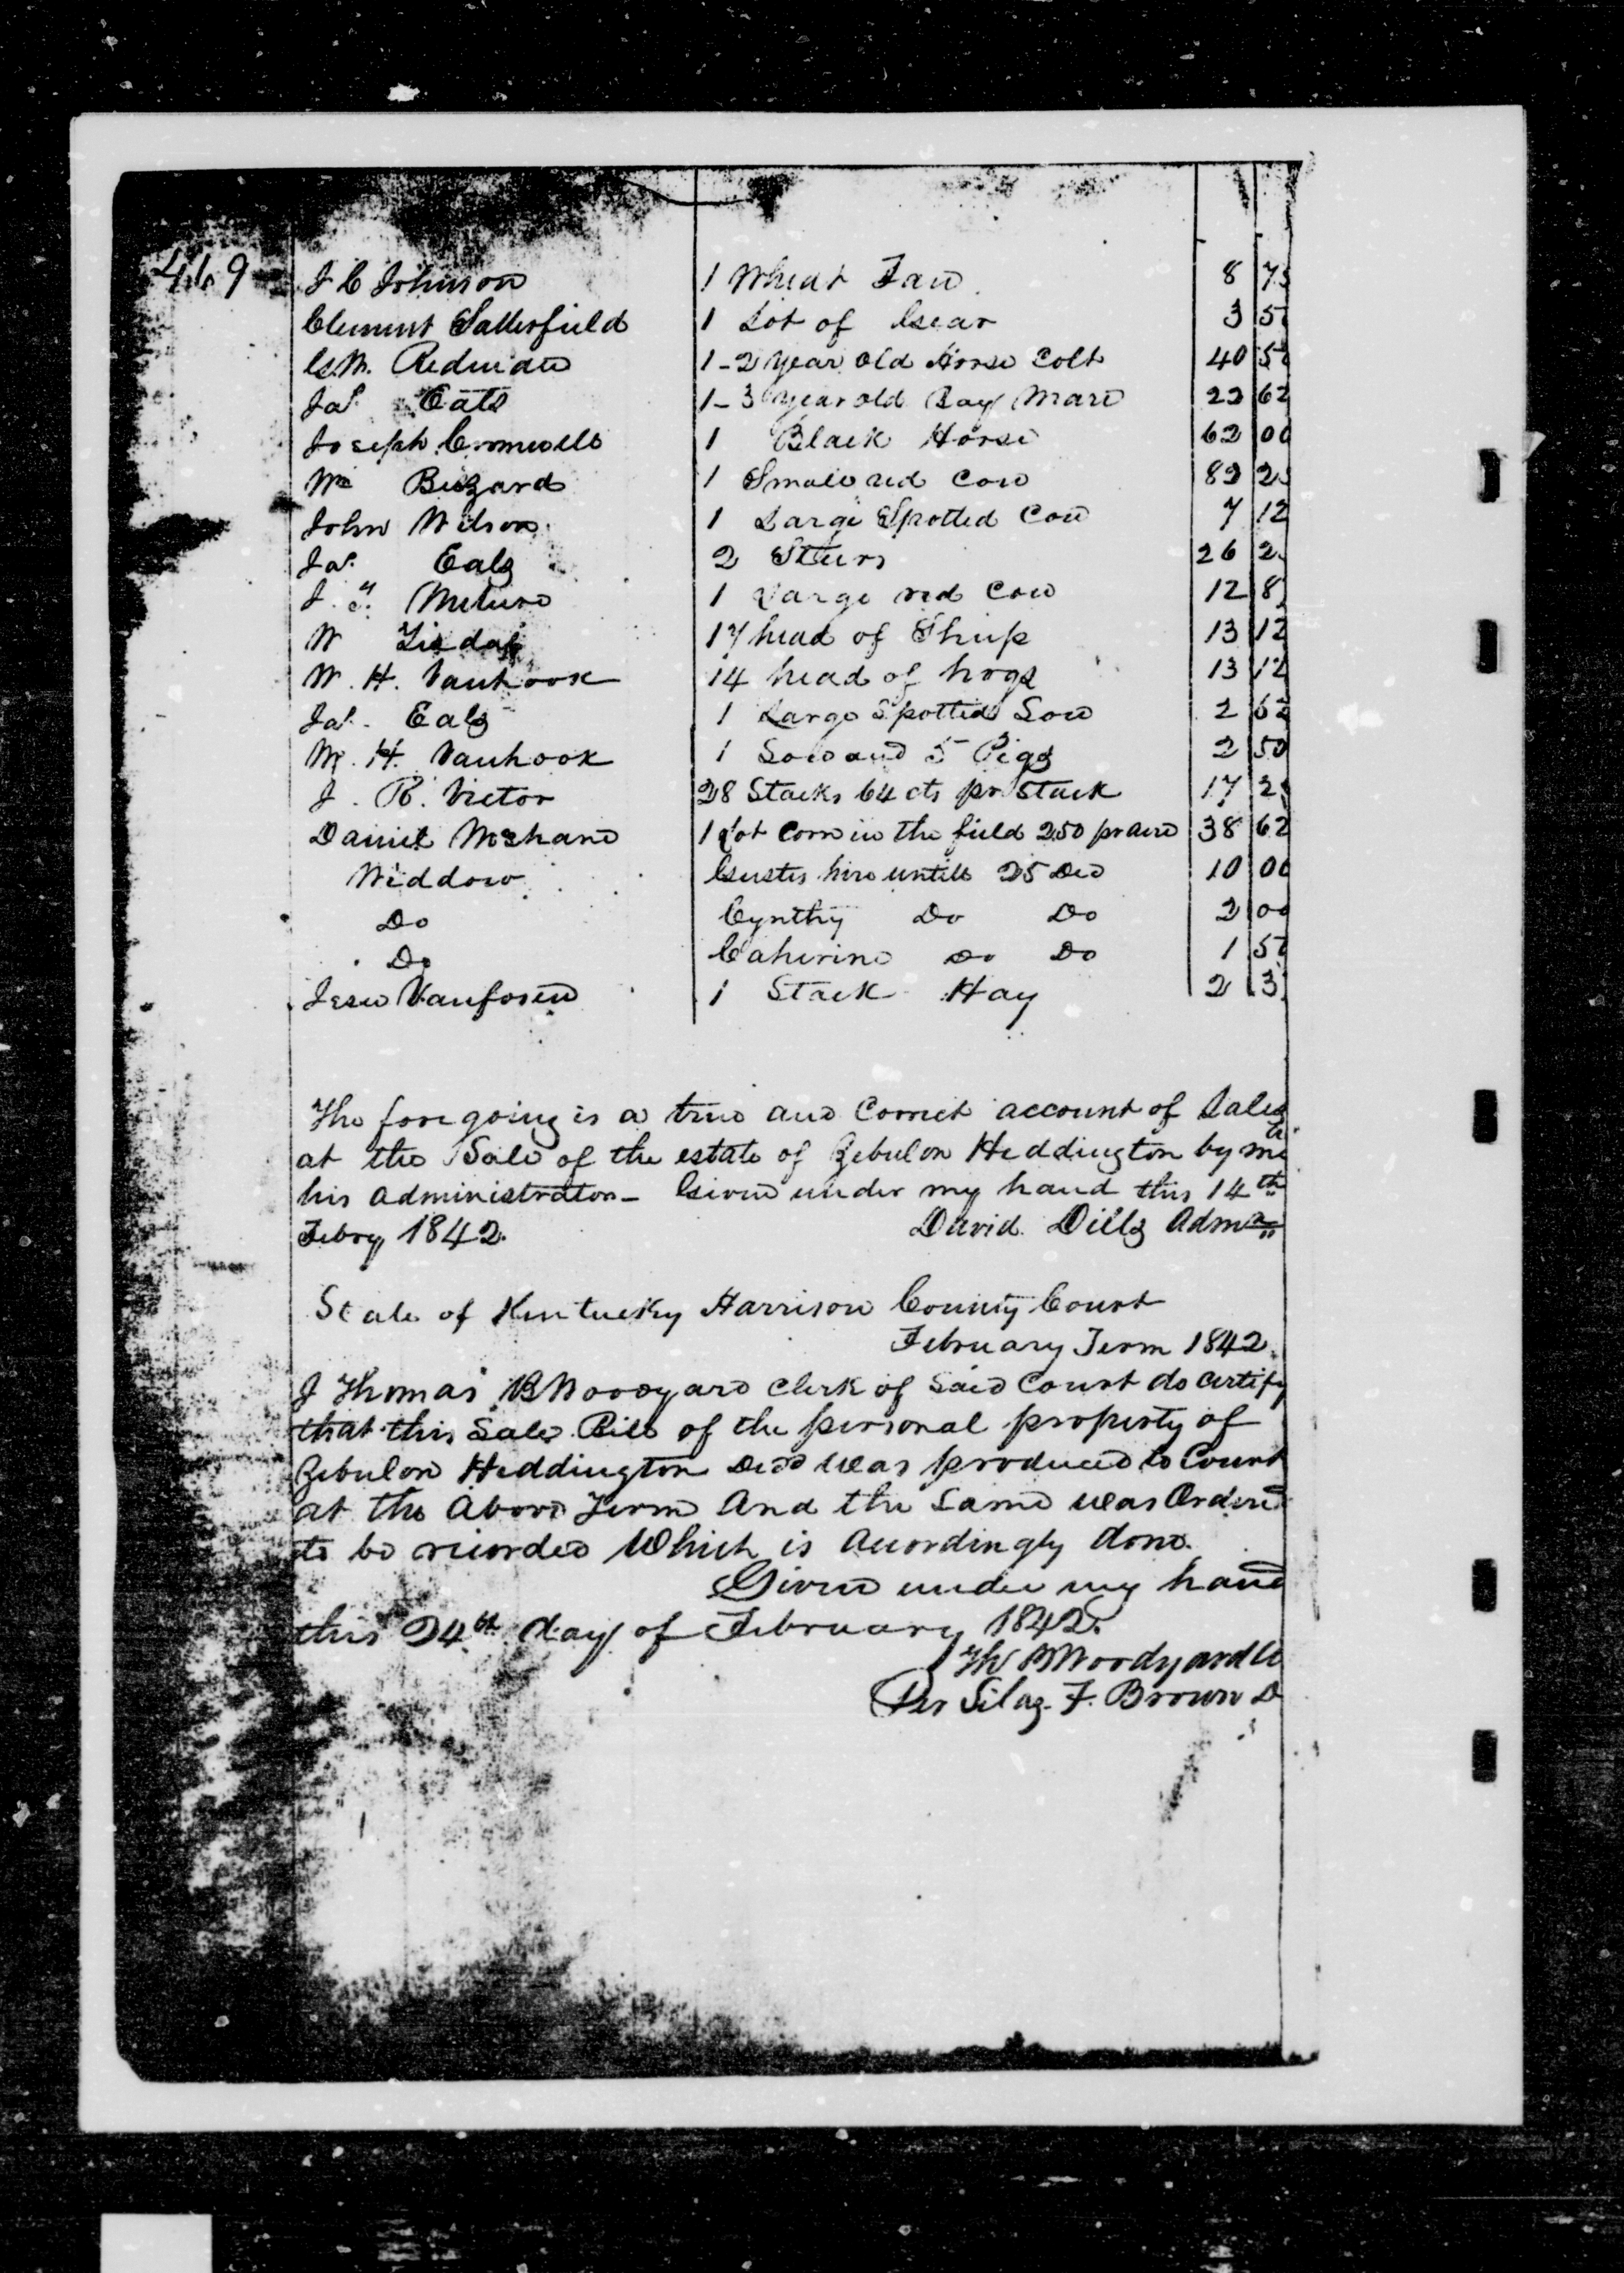 419 J C Johnson 1 Wheat Fan 8 75
Clement Satterfield 1 Lot of Gear 3 50
G.M. Redmon 1-2 year old Horse Colt 40 50
Jas. Eals 1-3 year old Bay Mare 22 62
Joseph Cromwell 1 Black Horse 62 00
Wm Buzzard 1 Small red Cow 82 2
John Wilson 1 Large Spotted Cow 7 12
Jas. Eals 2 Steers 26 2
J. 1 Large red Cow 12 8
W 17 head of Sheep 13 12
W. H. Vanhook 14 head of hogs 13 12
Jas. Eals 1 Large Spotted Sow 2 62
W. H. Vanhook 1 Sow and 5 Pigs 2 50
J. R. Victor 28 Stacks 64 cts pr Stack 17 2
Daniel McShane 1 Lot Corn in the field 250 pr acre 38 62
Widdow hire untill 25 Dec 10 00
Do Cynthy Do Do 2 00
Do Caherine Do Do 1 50
Jesse Vanfosen 1 Stack Hay 2 3
The foregoing is a true and Correct account of Sales
at the Sale of the estate of Zebulon Heddington by me
his administrator - Given under my hand this 14th
Febry 1842. David Dills Admr
State of Kentucky Harrison County Court
February Term 1842.
I Thomas B Woodyard Clerk of Said Court do certify
that this Sale Bill of the personal property of
Zebulon Heddington Decd was produced to Court
at the Above Term And the Same was Ordered
to be recorded Which is Accordingly done.
Given under my hand
this 24th day of February 1842.
Th B Woodyard Cl
Per Silas F. Brown D